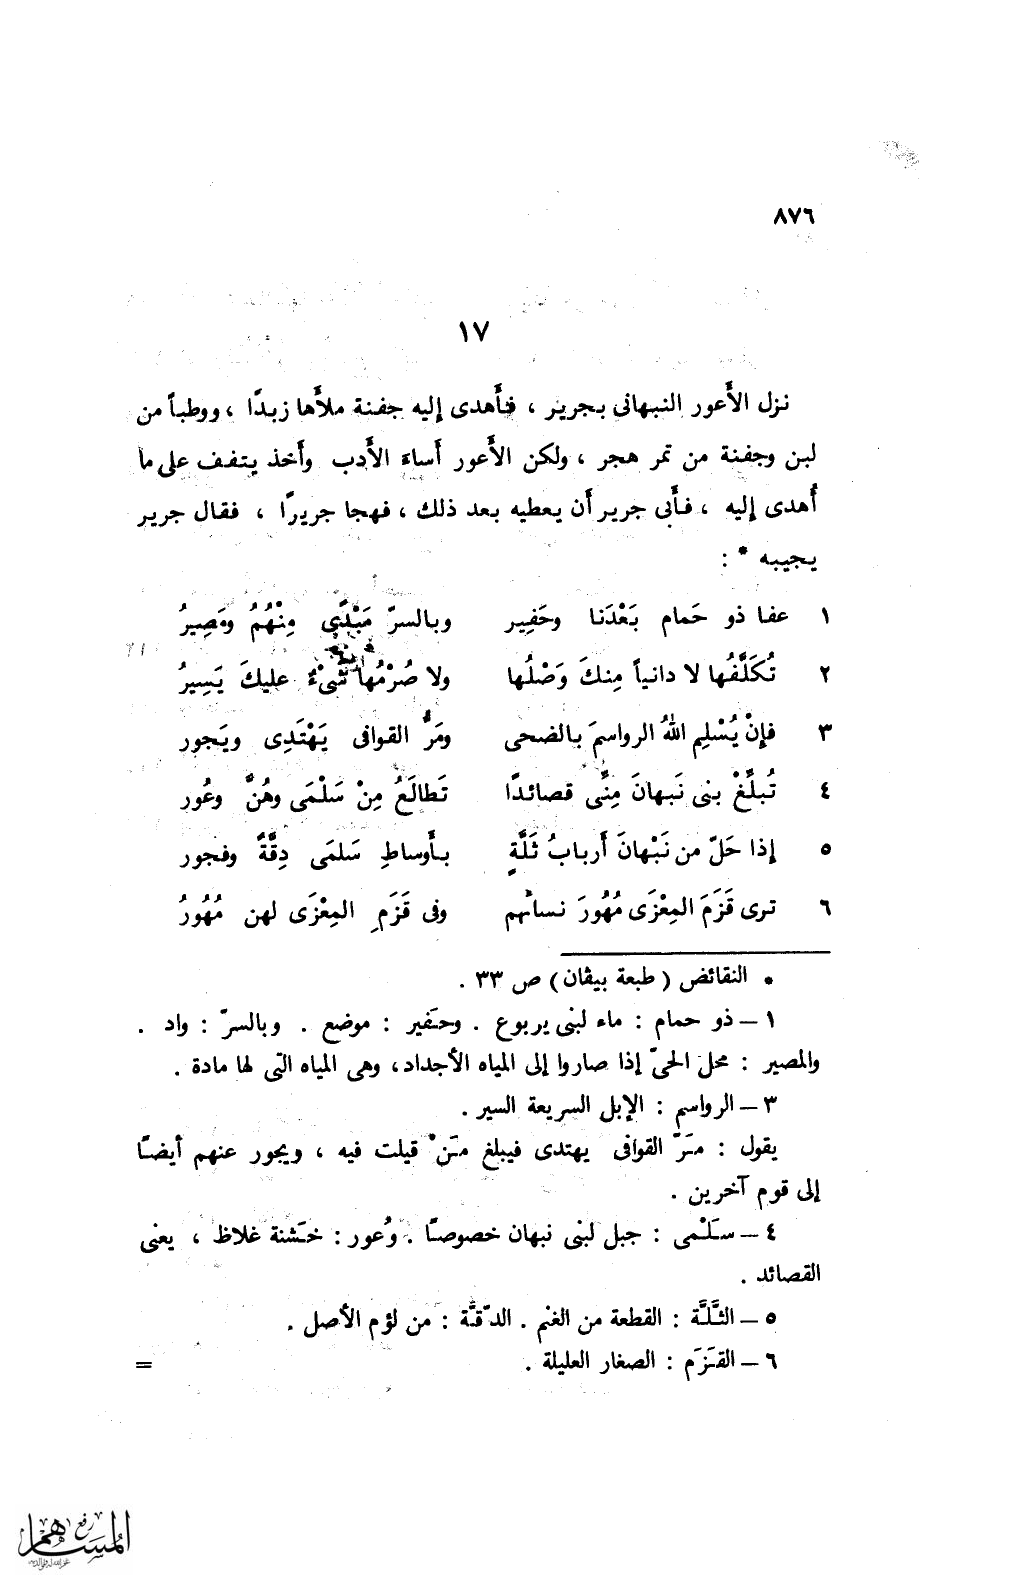 ٨٧٦
١٧
نزل الأَعور النبهانى بجرير ، فأَهدى إليه جفنة ملأَها زبدًا ، ووطباً من
لبن وجفنة من تمر هجر ، ولكن الأَعور أَساءَ الأَدب وأَخذ يتفف على ما
أُهدى إليه ، فأَبى جرير أَن يعطيه بعد ذلك ، فهجا جريرًا ، فقال جرير
يجيبه * :
١ عفا ذو حَمام بَعْدَنا وحَفِير وبالسرّ مَبْدًى مِنْهُمُ ومَصِيرُ
٢ تُكَلَّفُها لا دانياً مِنكَ وَصْلُها ولا صُرْمُها شَىْءٌ عليكَ يَسِيرُ
٣ فإِنْ يُسْلِمِ اللهُ الرواسمَ بالضحى ومَرُّ القوافى يَهْتَدِى ويَجور
٤ تُبلِّغْ بنى نَبهانَ مِنِّى قصائدًا تَطالَعُ مِنْ سَلْمَى وهُنَّ وعُور
٥ إذا حَلّ من نَبْهانَ أَربابُ ثَلَّةٍ بأَوساطِ سَلمَى دِقَّةٌ وفجور
٦ ترى قَزَمَ المِعْزَى مُهُورَ نسائهم وفى قَزَمِ المِعْزَى لهن مُهُورُ
* النقائض ( طبعة بيڤان ) ص ٣٣ .
١ – ذو حمام : ماء لبنى يربوع . وحَفير : موضع . وبالسرّ : واد .
والمصير : محل الحىّ إذا صاروا إلى المياه الأجداد ، وهى المياه التى لها مادة .
٣ – الرواسم : الإبل السريعة السير .
يقول : مَرّ القوافى يهتدى فيبلغ مَنْ قيلت فيه ، ويجور عنهم أيضًا
إلى قوم آخرين .
٤ – سَلْمى : جبل لبنى نبهان خصوصًا . وُعور : خَشنة غلاظ ، يعنى
القصائد .
٥ – الثَّلَّة : القطعة من الغنم . الدّقَّة : من لؤم الأصل .
٦ – القَزَم : الصغار العليلة . =
رفع
المساهم